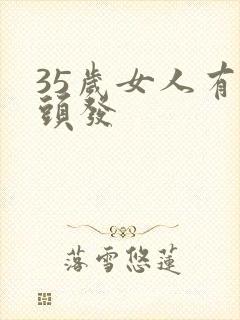 35歲女人有
頭發
落雪悠蓮